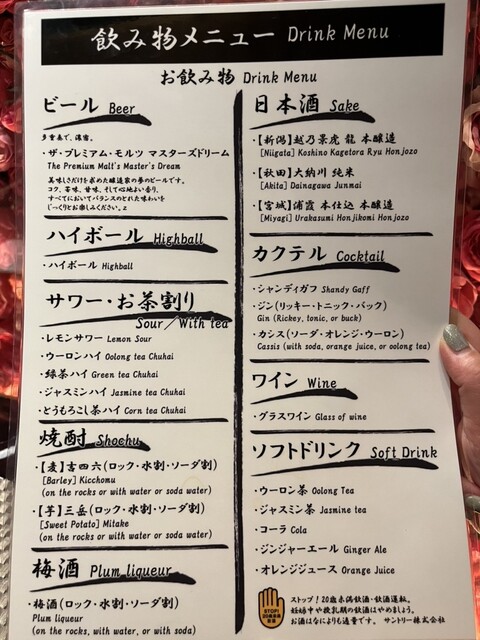 飲み物メニュー Drink Menu
お飲み物 Drink Menu
ビール Beer
多重奏で、濃密。
・ザ・プレミアム・モルツ マスターズドリーム
The Premium Malt's Master's Dream
美味しさだけを求めた醸造家の夢のビールです。
コク、苦味、甘味、そして心地よい香り。
すべてにおいてバランスのとれた味わいを
じっくりとお楽しみください。
ハイボール Highball
・ハイボール Highball
サワー・お茶割り
Sour／With tea
・レモンサワー Lemon Sour
・ウーロンハイ Oolong tea Chuhai
・緑茶ハイ Green tea Chuhai
・ジャスミンハイ Jasmine tea Chuhai
・とうもろこし茶ハイ Corn tea Chuhai
焼酎 Shochu
・【麦】吉四六(ロック・水割・ソーダ割)
[Barley] Kicchomu
(on the rocks or with water or soda water)
・【芋】三岳(ロック・水割・ソーダ割)
[Sweet Potato] Mitake
(on the rocks or with water or soda water)
梅酒 Plum liqueur
・梅酒(ロック・水割・ソーダ割)
Plum liqueur
(on the rocks, with water, or with soda)
日本酒 Sake
・【新潟】越乃景虎 龍 本醸造
[Niigata] Koshino Kagetora Ryu Honjozo
・【秋田】大納川 純米
[Akita] Dainagawa Junmai
・【宮城】浦霞 本仕込 本醸造
[Miyagi] Urakasumi Honjikomi Honjozo
カクテル Cocktail
・シャンディガフ Shandy Gaff
・ジン(リッキー・トニック・バック)
Gin (Rickey, tonic, or buck)
・カシス(ソーダ・オレンジ・ウーロン)
Cassis (with soda, orange juice, or oolong tea)
ワイン Wine
・グラスワイン Glass of wine
ソフトドリンク Soft Drink
・ウーロン茶 Oolong Tea
・ジャスミン茶 Jasmine tea
・コーラ Cola
・ジンジャーエール Ginger Ale
・オレンジジュース Orange Juice
STOP!
ストップ！20歳未満飲酒・飲酒運転。
妊娠中や授乳期の飲酒はやめましょう。
お酒はなによりも適量です。 サントリー株式会社